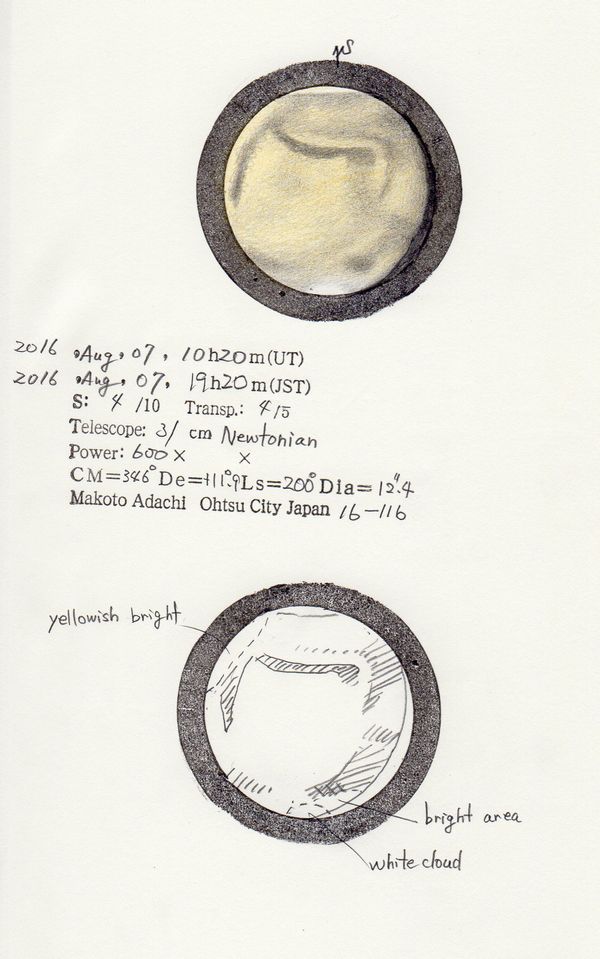 S
2016 Aug. 07, 10h20m(UT)
2016 Aug. 07, 19h20m(JST)
S: 4 /10 Transp.: 4/5
Telescope: 31 cm Newtonian
Power: 600× ×
CM=346° De=+11°.9 Ls=200° Dia=12".4
Makoto Adachi Ohtsu City Japan 16-116
yellowish bright
bright area
white cloud